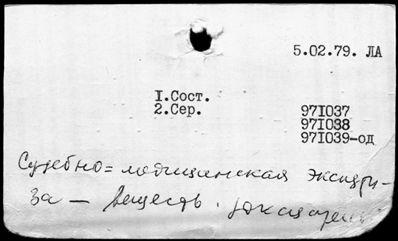 5.02.79. ЛА
I.Сост.
2.Сер. 97I037
97I038
97I039-од
Судебно=медицинская экспрти-
за — веществ.